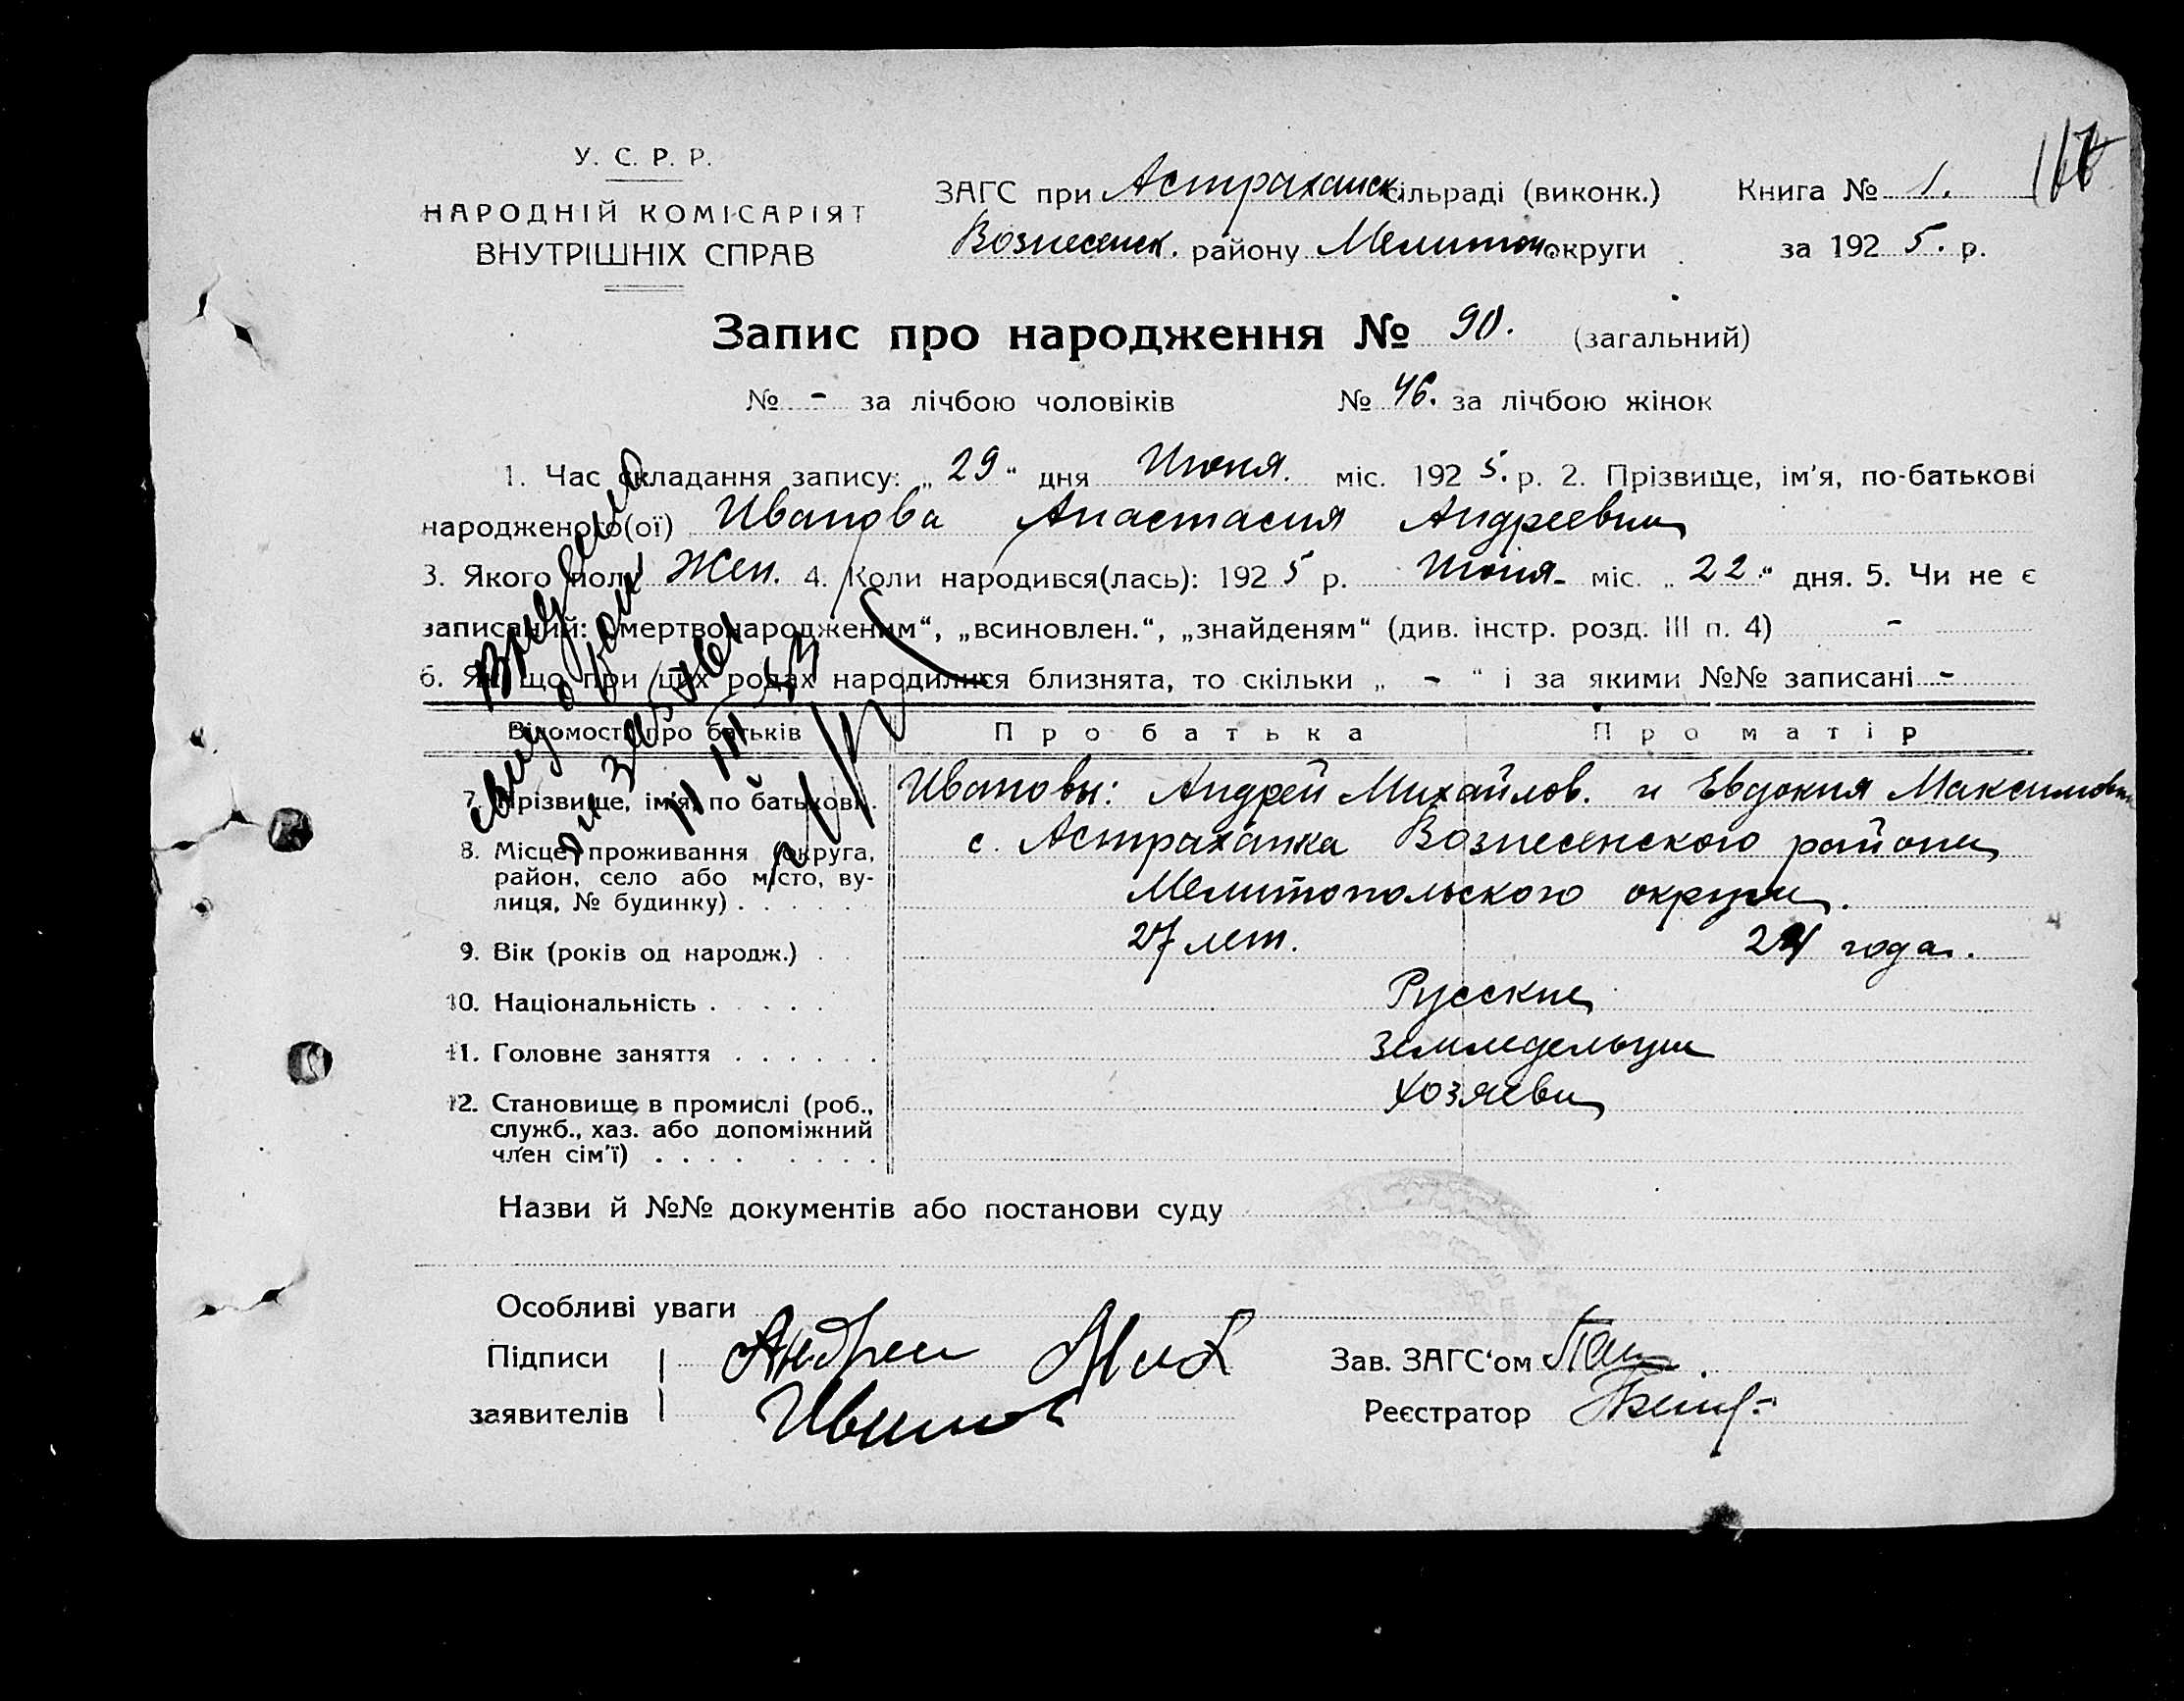 У. С. Р. Р.
НАРОДНІЙ КОМІСАРІЯТ
ВНУТРІШНІХ СПРАВ
ЗАГС при Астраханск. сільраді (виконк.) Книга № 1.
Вознесенск. району Мелитоп. округи за 1925. р.
Запис про народження № 90. (загальний)
№ - за лічбою чоловіків № 46. за лічбою жінок
1. Час складання запису: „29“ дня Июня. міс. 1925. р. 2. Прізвище, ім'я, по-батькові
народженого(ої) Иванова Анастасия Андреевна
3. Якого полу Жен. 4. Коли народився(лась): 1925 р. Июня міс. „22“ дня. 5. Чи не є
записаний: „мертвонародженим“, „всиновлен.“, „знайденям“ (див. інстр. розд. III п. 4) -
6. Якщо при цих родах народилися близнята, то скільки „ - “ і за якими №№ записані -
Відомості про батьків Про батька Про матір
7. Прізвище, ім'я, по батькові. Ивановы: Андрей Михайлов. и Евдокия Максимовна
8. Місце проживання (округа, район, село або місто, вулиця, № будинку) . . . . . . с. Астраханка Вознесенского района
Мелитопольского округа.
9. Вік (років од народж.) . . 27 лет. 24 года.
10. Національність . . . . . Русские
11. Головне заняття . . . . . . Земледельцы
12. Становище в промислі (роб., служб., хаз. або допоміжний член сім'ї) . . . . . . . . Хозяева
Назви й №№ документів або постанови суду
Особливі уваги
Підписи Андрей Мих
заявителів Иванов
Зав. ЗАГС'ом
Реєстратор